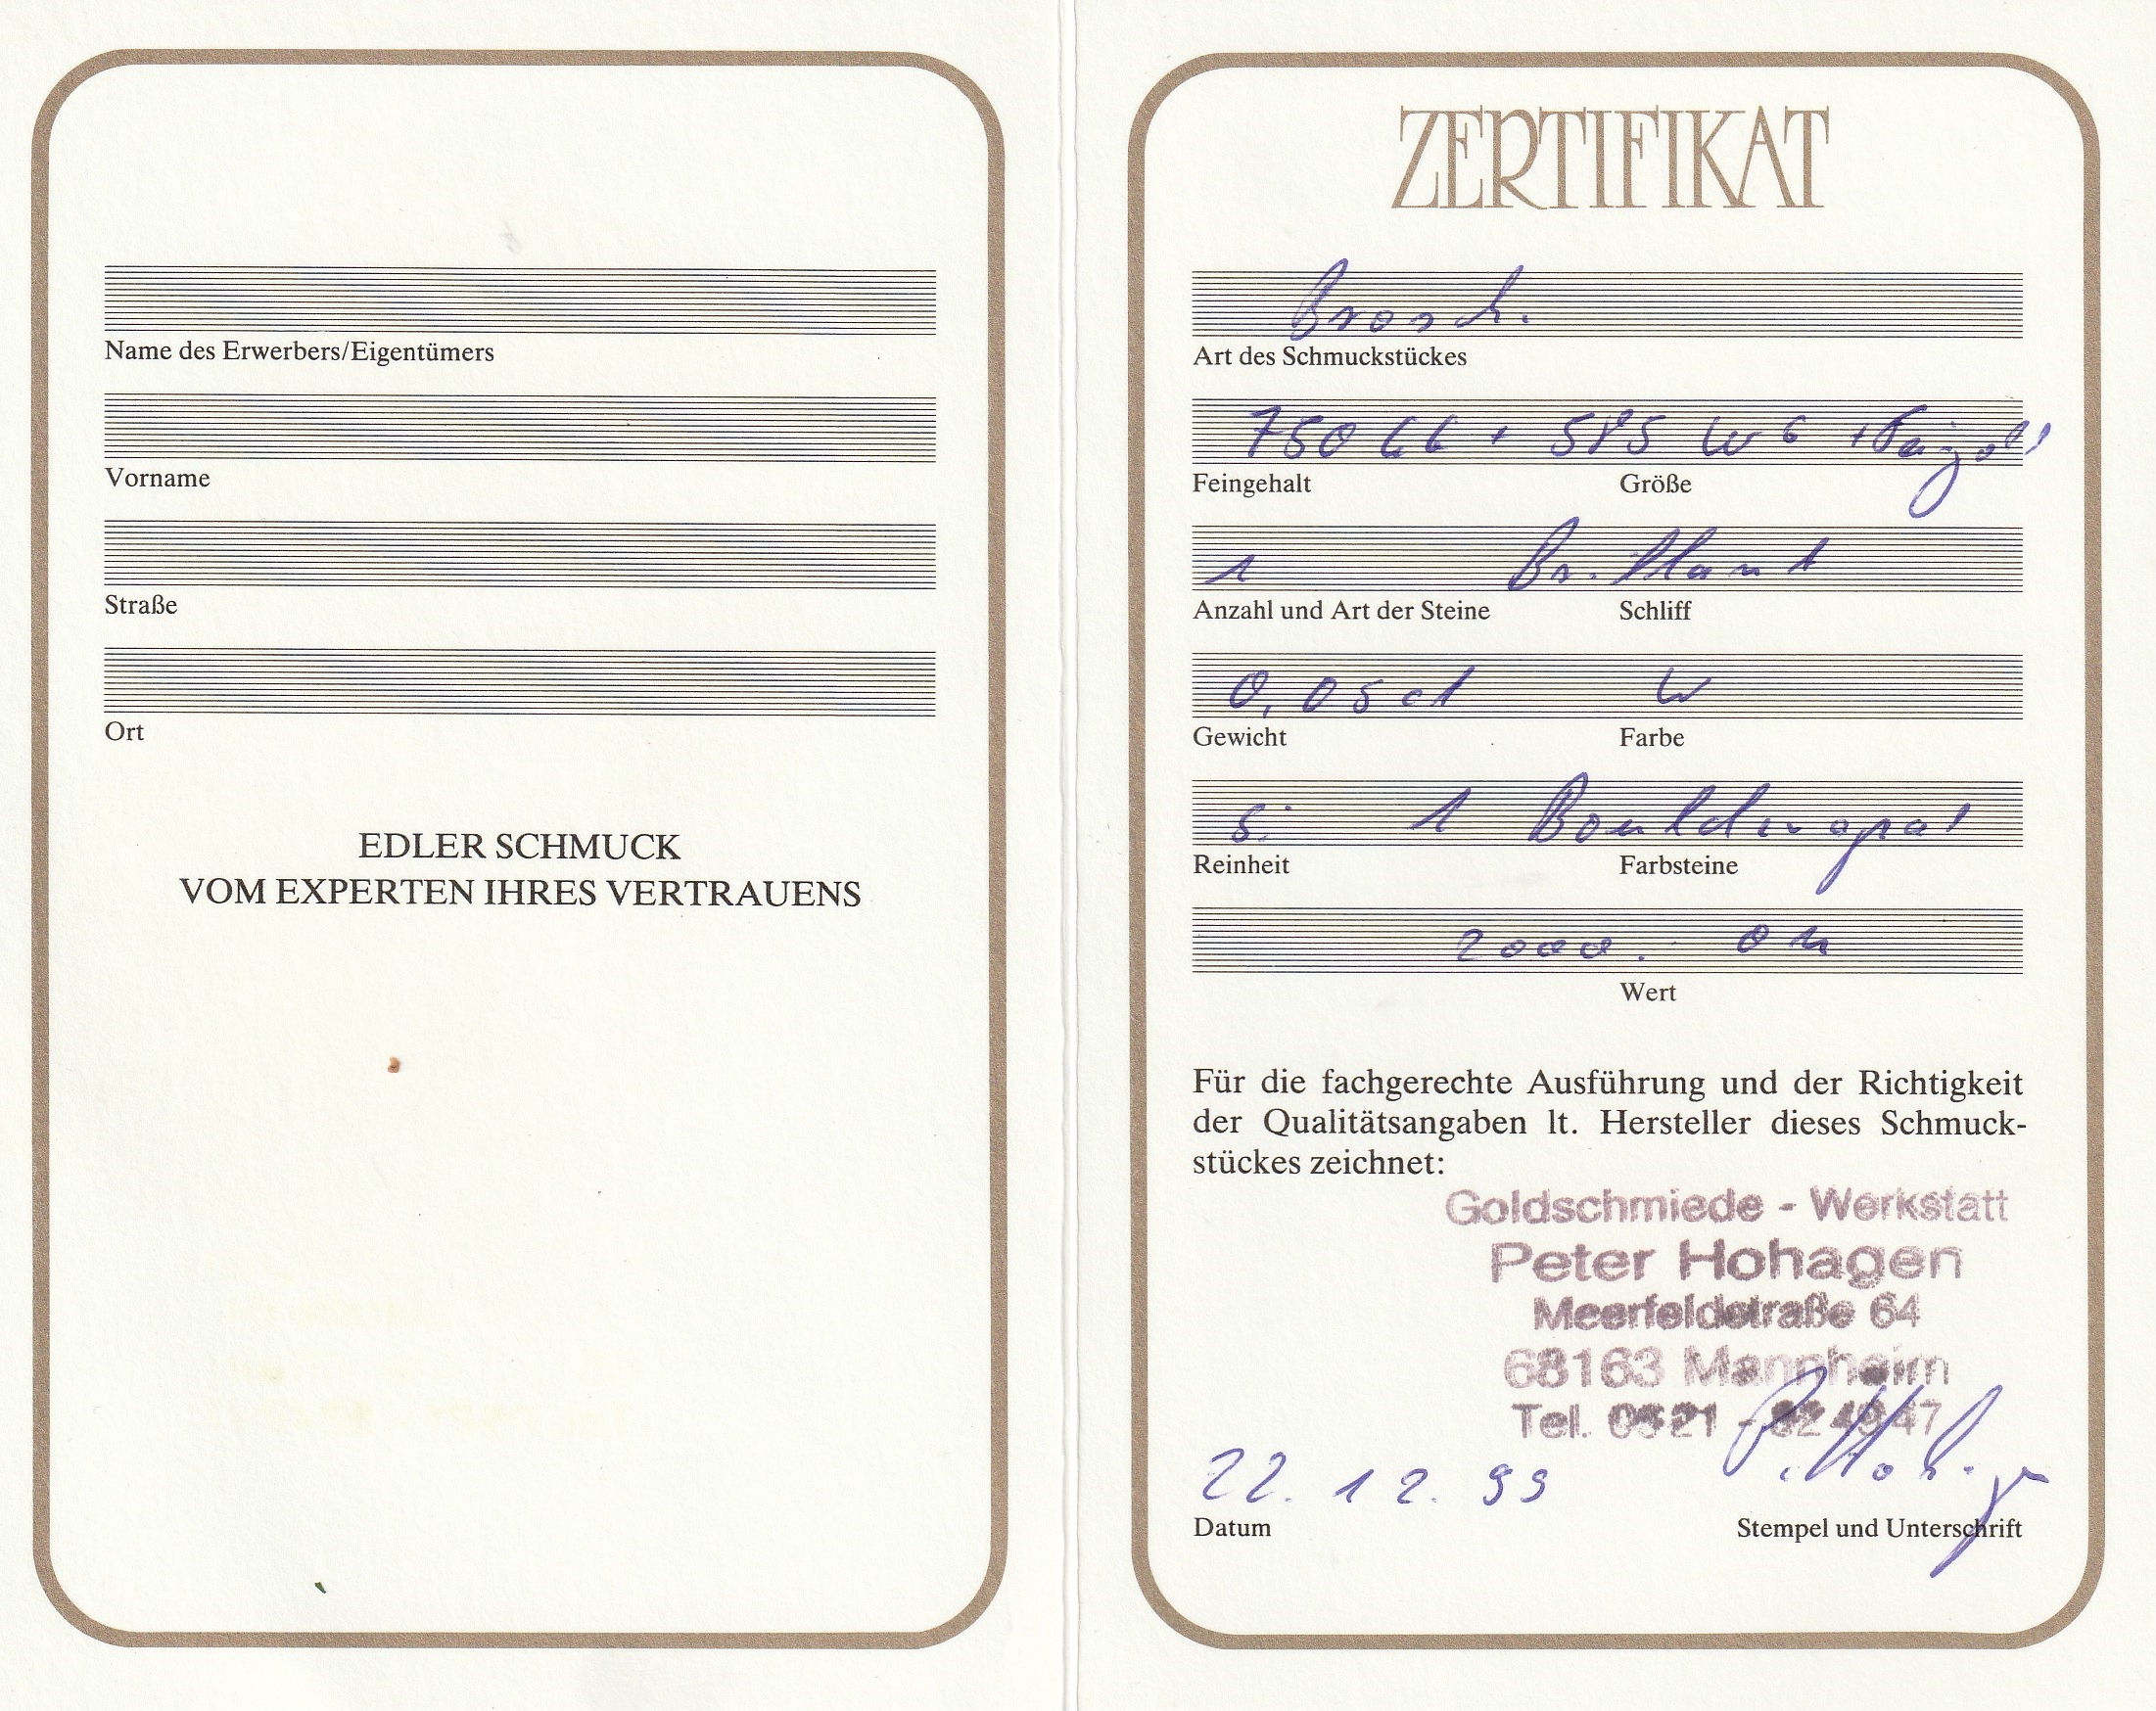 Name des Erwerbers/Eigentümers
Vorname
Straße
Ort
EDLER SCHMUCK
VOM EXPERTEN IHRES VERTRAUENS
ZERTIFIKAT
Brosch.
Art des Schmuckstückes
750 GG + 585 WG + Feingold
Feingehalt Größe
1 Brillant
Anzahl und Art der Steine Schliff
0,05 ct W
Gewicht Farbe
si 1 Boulderopal
Reinheit Farbsteine
2000. DM
Wert
Für die fachgerechte Ausführung und der Richtigkeit
der Qualitätsangaben lt. Hersteller dieses Schmuck-
stückes zeichnet:
Goldschmiede - Werkstatt
Peter Hohagen
Meerfeldstraße 64
68163 Mannheim
Tel. 0621 - 824947
22. 12. 99 P. Hohagen
Datum Stempel und Unterschrift